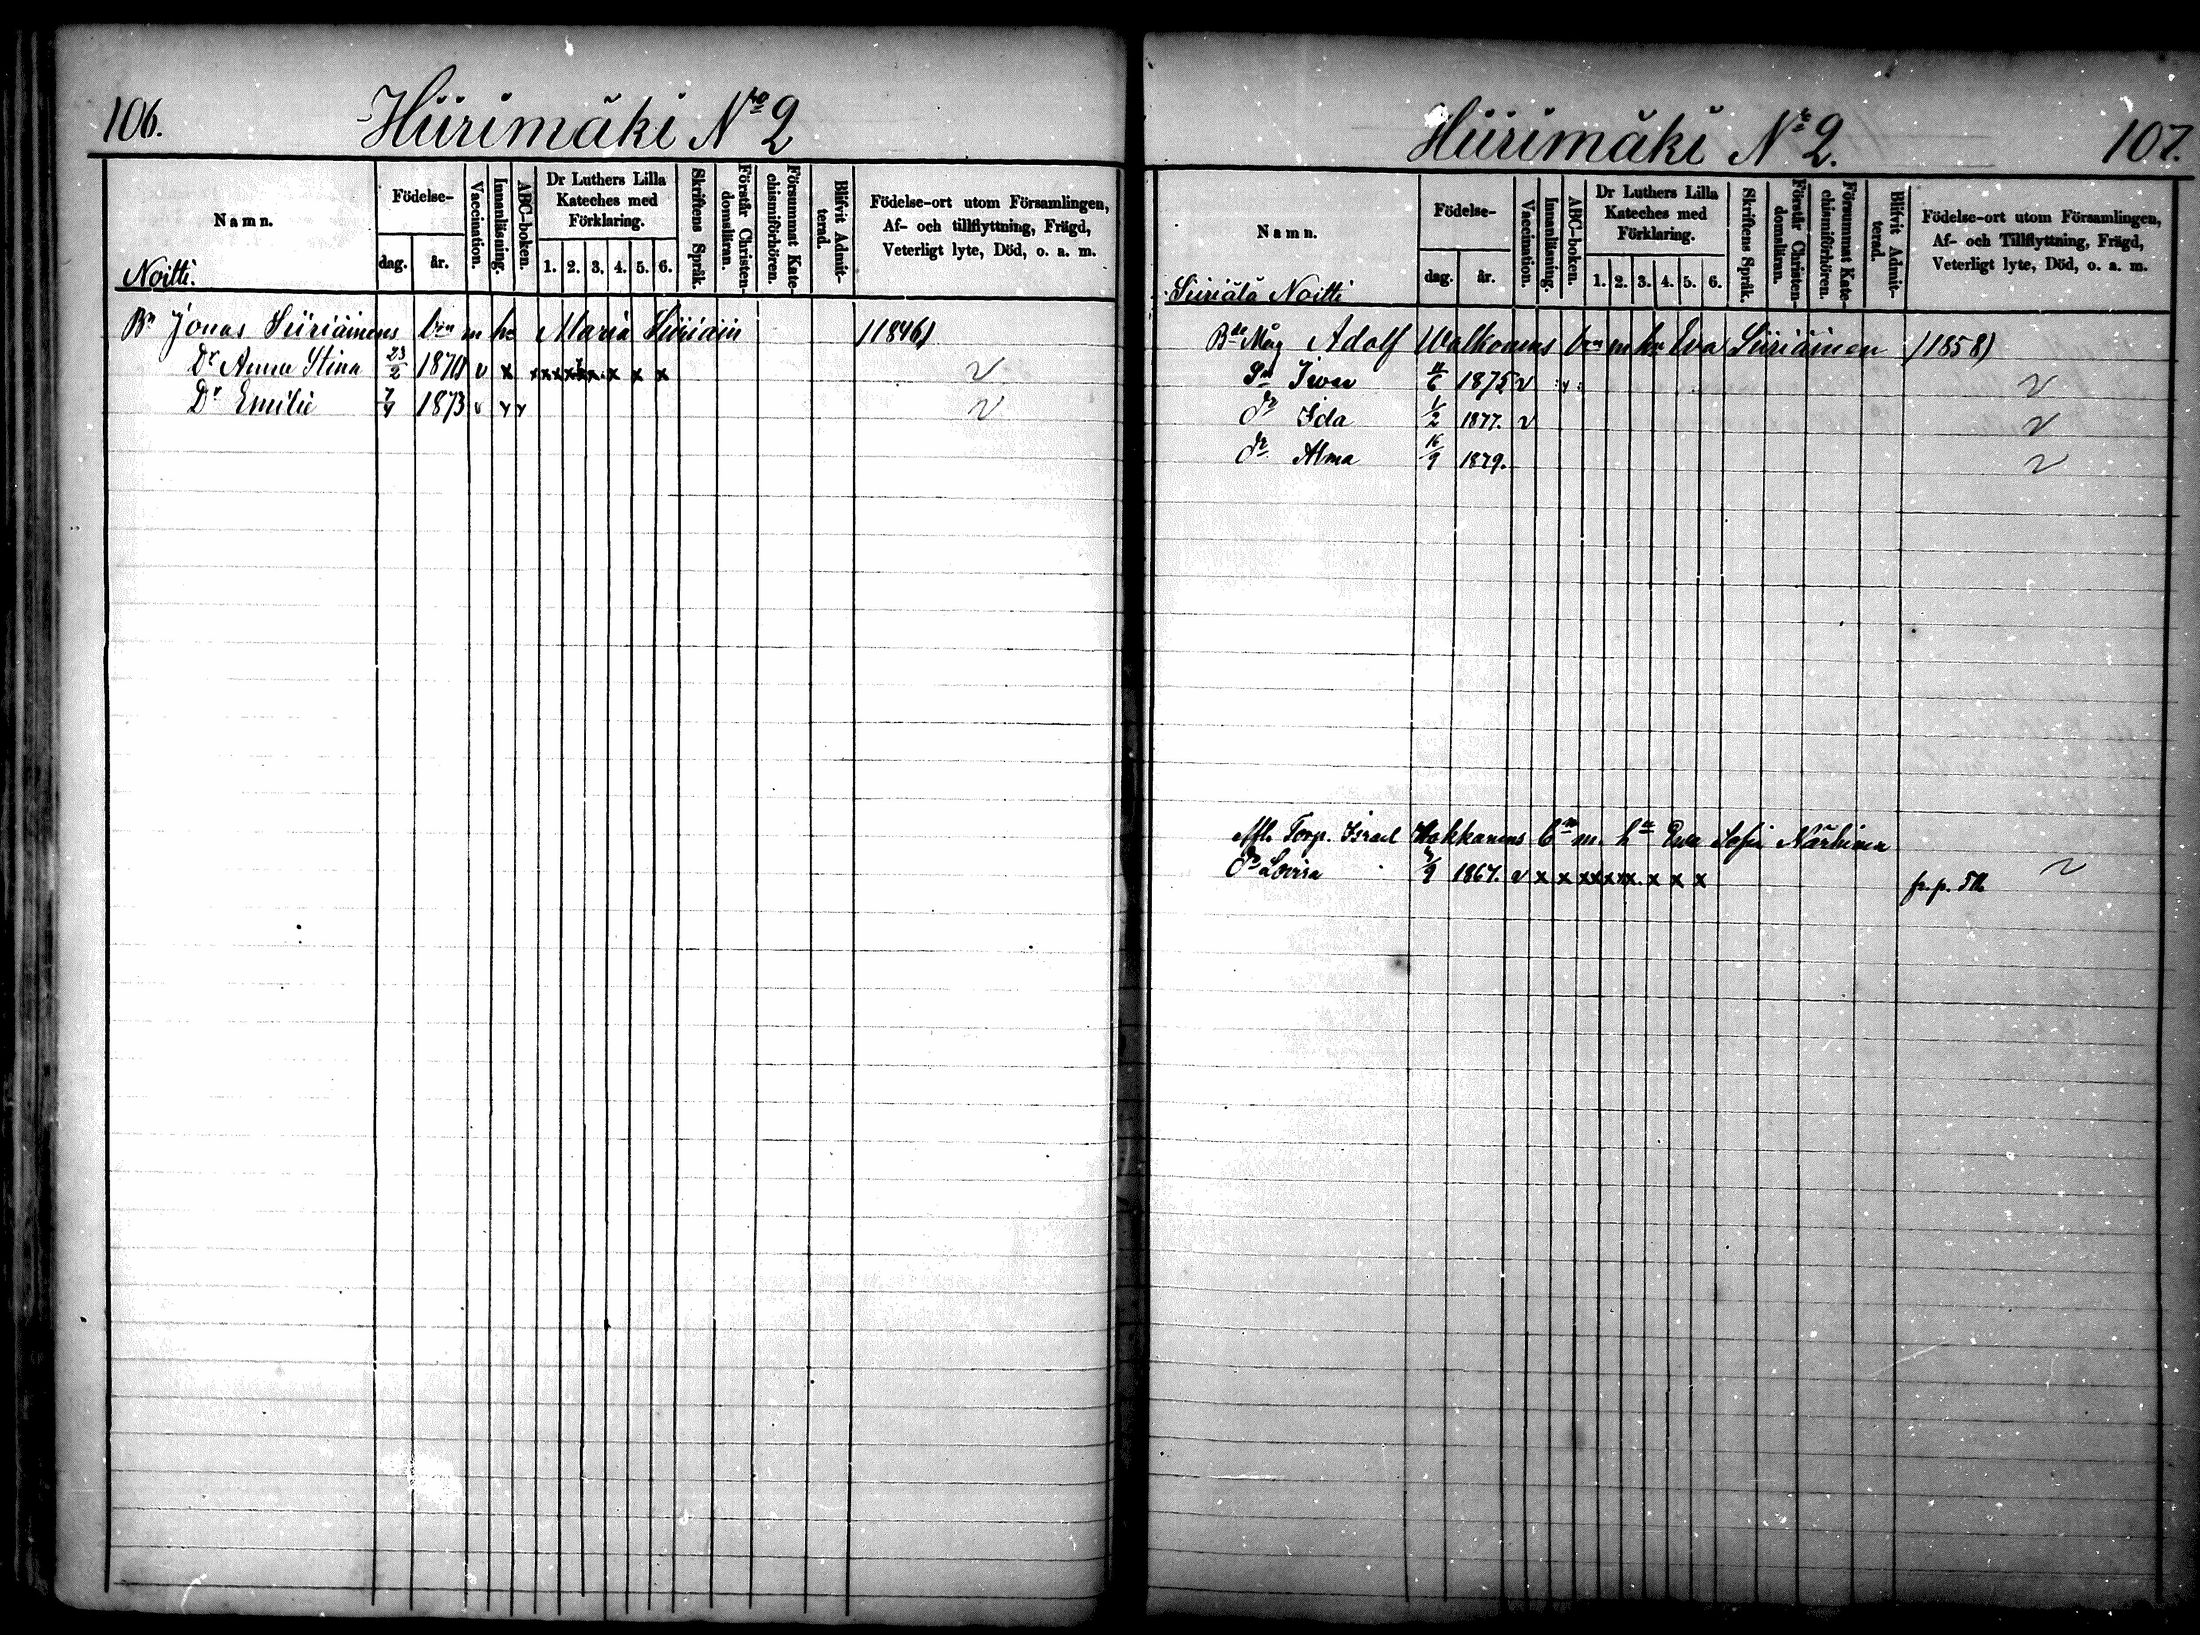 106.
Hiirimäki No 2
Namn.
Födelse-
dag.
år.
Vaccination.
Innanläsning.
ABC-boken.
Dr Luthers Lilla
Kateches med
Förklaring.
1. 2. 3. 4. 5. 6.
Skriftens Språk.
Förstår Christen-
domsläran.
Försummat Kate-
chismiförhören.
Blifvit Admit-
terad.
Födelse-ort utom Församlingen,
Af- och tillflyttning, Frägd,
Veterligt lyte, Död, o. a. m.
Noitti.
Bn Jonas Siiriäinens brn m hu Maria Siiriäin (1846)
Dr Anna Stina 23/2 1870 v x x x x x x x x x v
Dr Emilie 7/4 1873 v v v v
Hiirimäki No 2.
107.
Namn.
Födelse-
dag.
år.
Vaccination.
Innanläsning.
ABC-boken.
Dr Luthers Lilla
Kateches med
Förklaring.
1. 2. 3. 4. 5. 6.
Skriftens Språk.
Förstår Christen-
domsläran.
Försummat Kate-
chismiförhören.
Blifvit Admit-
terad.
Födelse-ort utom Församlingen,
Af- och Tillflyttning, Frägd,
Veterligt lyte, Död, o. a. m.
Siiriälä Noitti
Bde Måg Adolf Walkonens brn m hu Eva Siiriäinen (1858)
Sn Iivar 1875 v v v
dr Ida 1/2 1877. v v
dr Alma 16/9 1879. v
Torp. Israel Hakkarens brn m. hu Eva Sofia Närhinen
dr Lovisa 1867. v x x x x x x x x x v
fr. p.